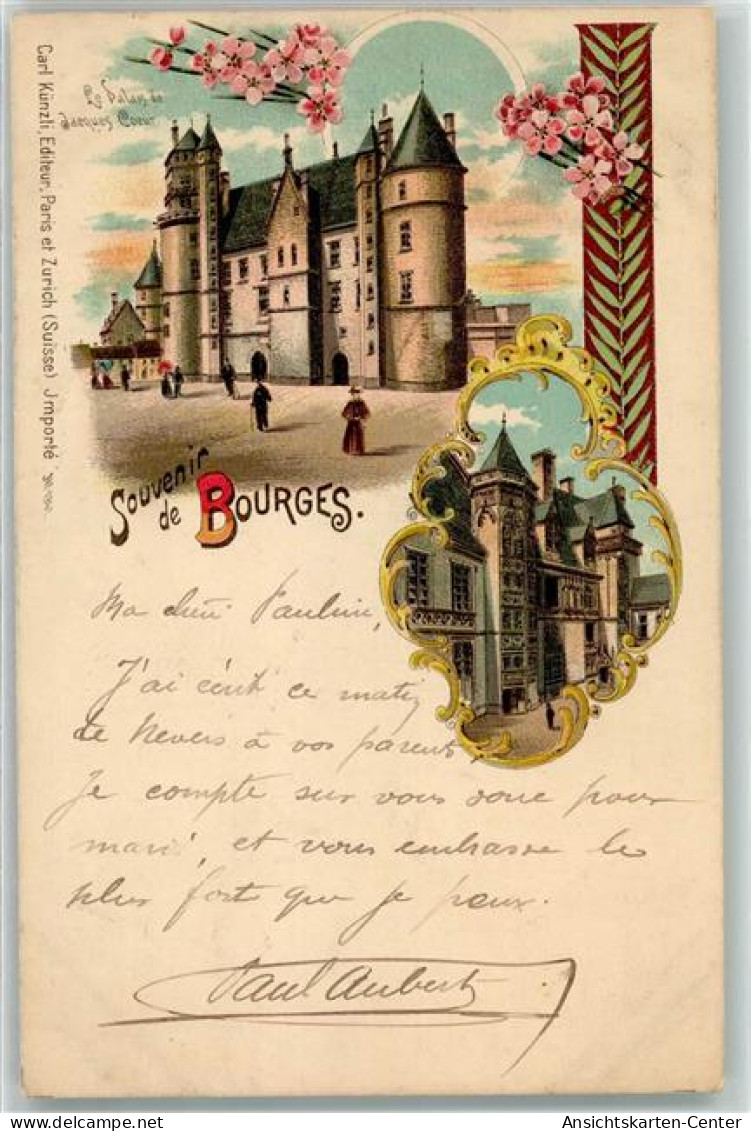 Le Palais de
Jacques Coeur
Carl Künzli, Editeur, Paris et Zurich (Suisse) Jmporté
Souvenir
de BOURGES.
Ma chère Pauline,
J'ai écrit ce matin
de Nevers à vos parents,
Je compte sur vous donc pour
mardi, et vous embrasse le
plus fort que je peux.
Paul Aubert
Ansichtskarten-Center